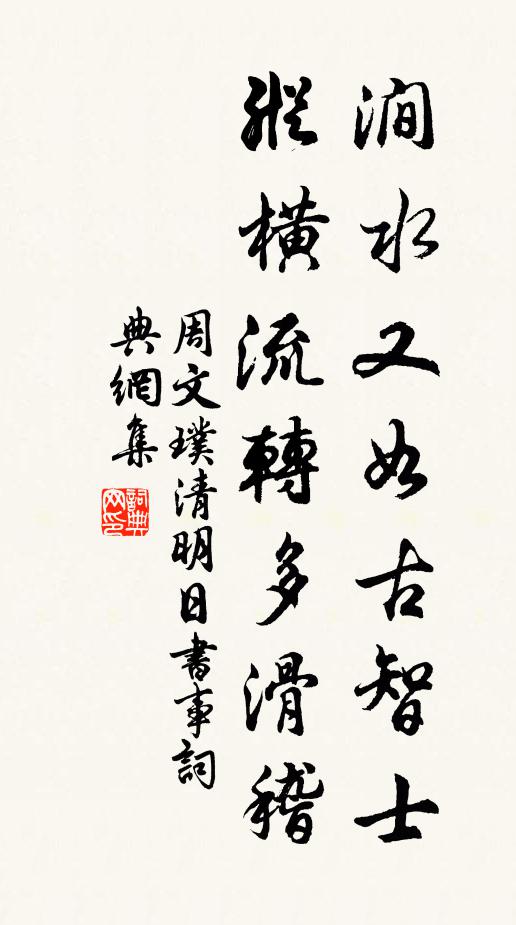 澗水又如古智士
縱橫流轉多滑稽
周文璞清明日書事詞
典網集
詞典网印